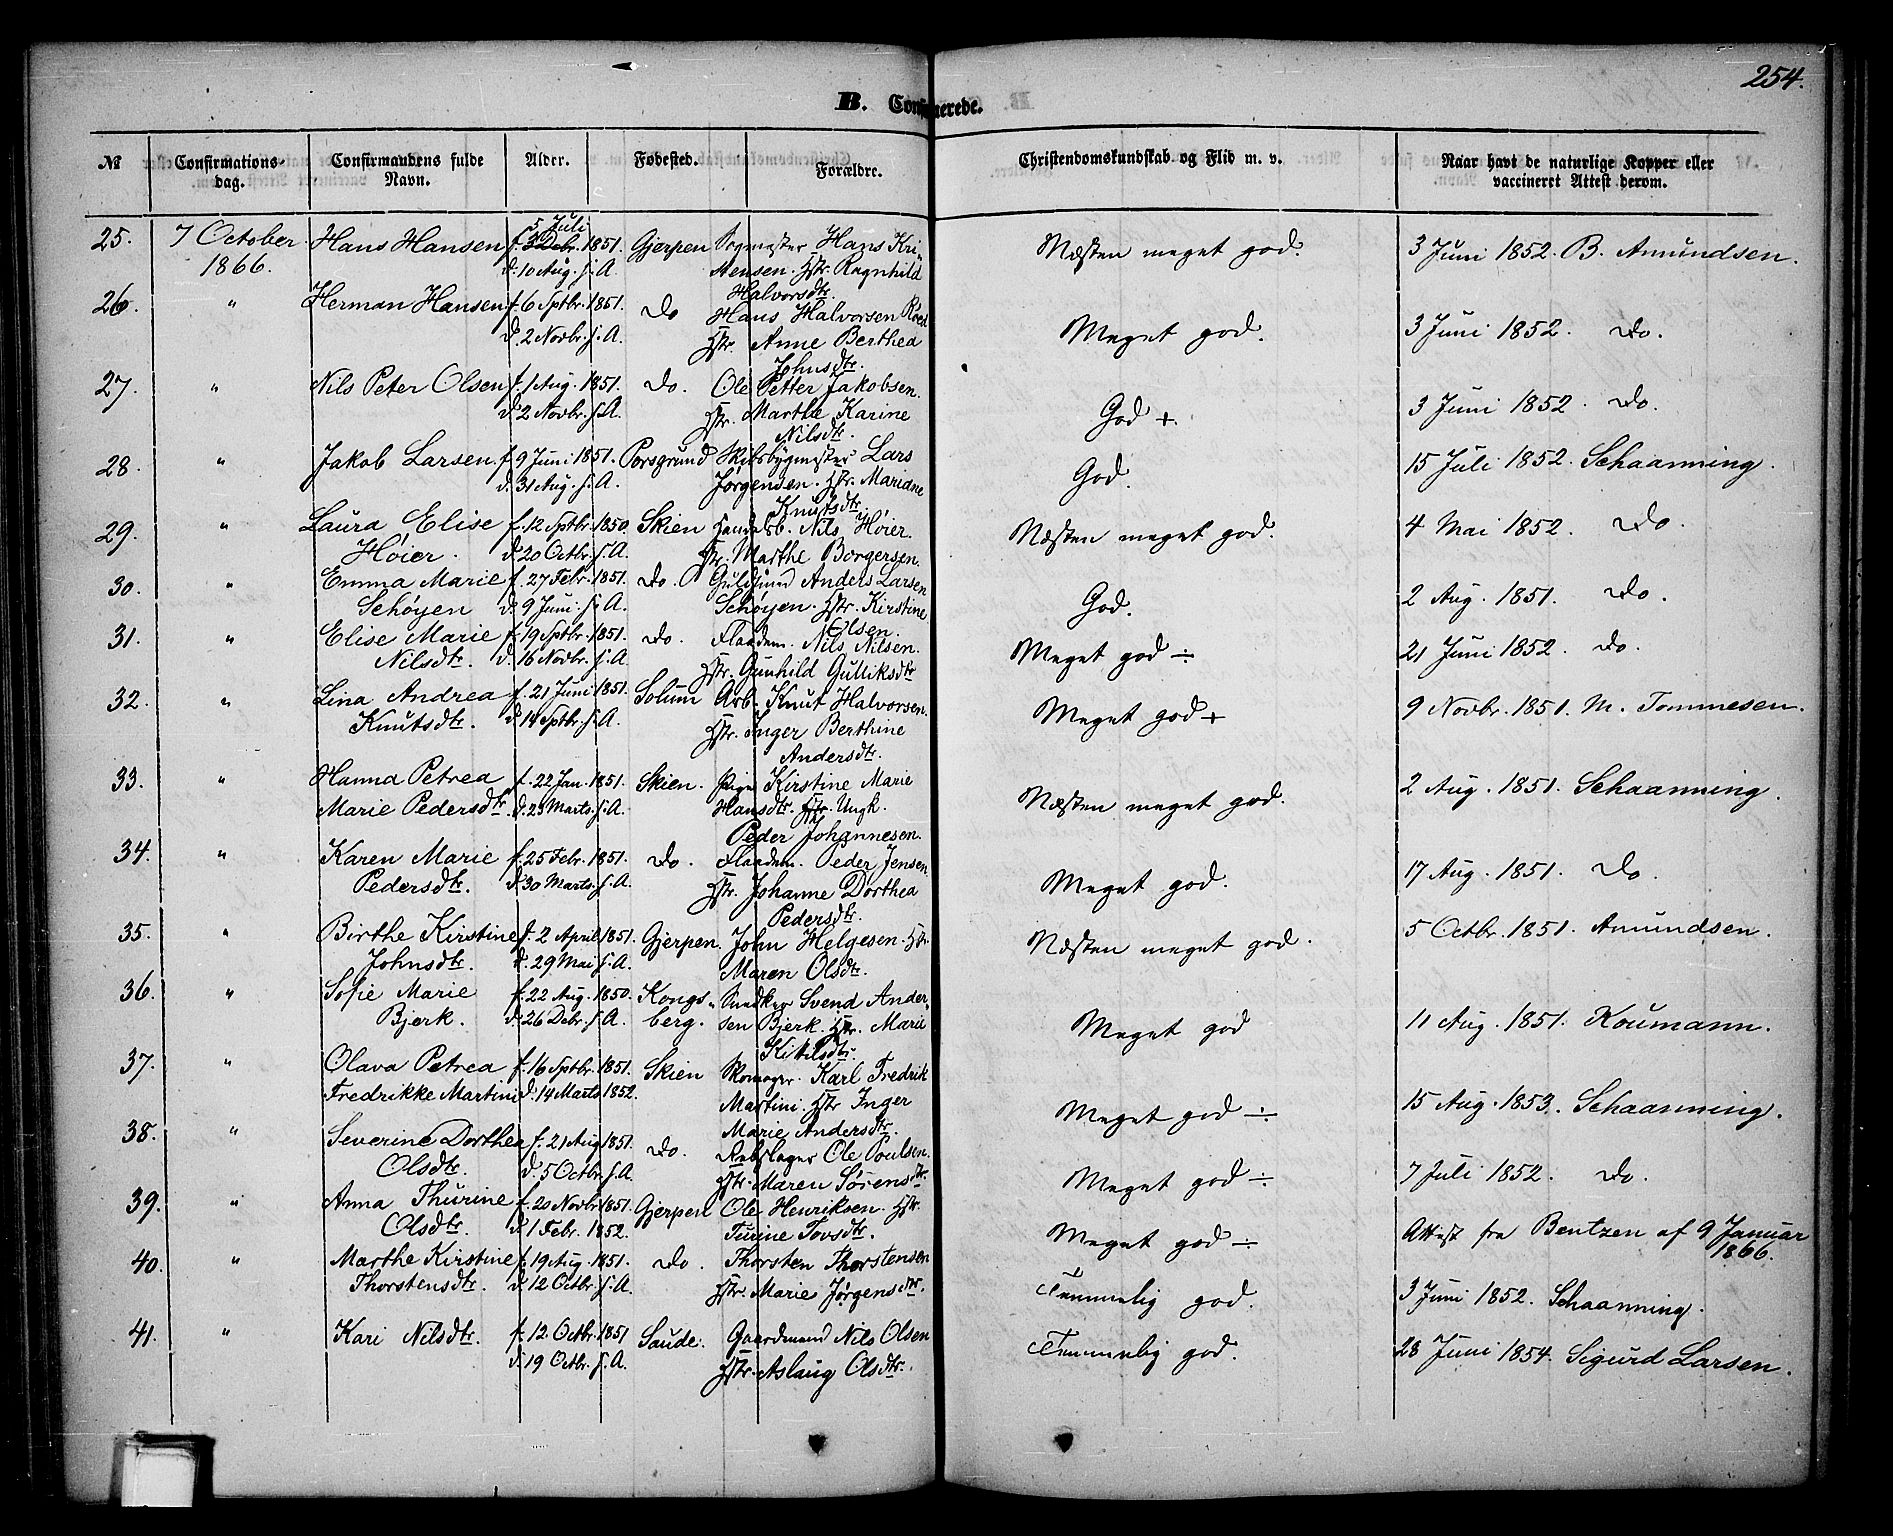 254.
B. Confirmerede.
№ Confirmations-dag. Confirmandens fulde Navn. Alder. Fødested. Forældre. Christendomskundskab og Flid m. v. Naar havt de naturlige Kopper eller vaccineret Attest derom.
25. 7 October Hans Hansen f. 5 Juli 3 Debr. 1851. Gjerpen Hans Kri- Næsten meget god. 3 Juni 1852. B. Amundsen.
1866. d. 10 Aug. s. A. stensen. Hstr. Ragnhild
Halvorsdtr.
26. " Herman Hansen f. 6 Sptbr. 1851. Do Hans Halvorsen Meget god. 3 Juni 1852. Do.
d. 2 Novbr. s. A. Hstr. Anne Berthea
Johnsdtr.
27. " Nils Peter Olsen f. 1 Aug. 1851. Do. Ole Petter Jakobsen. God +. 3 Juni 1852. Do.
d. 2 Novbr. s. A. Hstr. Marthe Karine
Nilsdtr.
28 " Jakob Larsen. f. 9 Juni 1851. Porsgrund Skibsbygmester Lars God. 15 Juli 1852. Schaanning.
d. 31 Aug. s. A. Jørgensen. Hstr. Mariane
Knutsdtr.
29. " Laura Elise f. 12 Sptbr. 1850. Skien Nils Høier. Næsten meget god. 4 Mai 1852. Do.
Høier. d. 20 Octbr. s. A. Hstr. Marthe Borgersen.
30. " Emma Marie f. 27 Febr. 1851. Do. Guldsmed Anders Larsen God. 2 Aug. 1851. Do.
Schøyen d. 9 Juni. s. A. Schøyen. Hstr. Kirstine
Olsen.
31. " Elise Marie f. 19 Sptbr. 1851. Do. Nils Nilsen. Meget god ÷ 21 Juni 1852. Do.
Nilsdtr. d. 16 Novbr. s. A. Hstr. Gunhild Gulliksdtr
32. " Lina Andrea f. 21 Juni 1851. Solum Arb. Knut Halvorsen. Meget god + 9 Novbr. 1851. M. Tommesen.
Knutsdtr. d. 14 Sptbr. s. A. Hstr. Inger Berthine
Andersdtr.
33. " Hanna Petrea f. 22 Jan. 1851. Skien. Pige Kirstine Marie Næsten meget god. 2 Aug. 1851. Schaanning.
Marie Pedersdtr. d. 23 Marts. s. A. Hansdtr. Ungk.
Peder Johannesen.
34. " Karen Marie f. 25 Febr. 1851. Do. Peder Jensen Meget god. 17 Aug. 1851. Do.
Pedersdtr. d. 30 Marts. s. A. Hstr. Johanne Dorthea
Pedersdtr.
35. " Birthe Kirstine f. 2 April 1851. Gjerpen. John Helgesen. Hstr. Næsten meget god. 5 Octbr. 1851. Amundsen.
Johnsdtr. d. 29 Mai s. A. Maren Olsdtr.
36. " Sofie Marie f. 22 Aug. 1850. Kongs- Snedker Svend Ander- Meget god 11 Aug. 1851. Koumann.
Bjerk. d. 26 Debr. s. A. berg. sen Bjerk. Hstr. Marie
Kitilsdtr.
37. " Olava Petrea f. 16 Sptbr. 1851. Skien Skomager Karl Fredrik Meget god ÷ 15 Aug. 1853. Schaanning.
Fredrikke Martini d. 14 Marts 1852. Martini Hstr Inger
Marie Andersdtr.
38. " Severine Dorthea f. 21 Aug 1851. Do. Rebslager Ole Poulsen. Meget god ÷ 7 Juli 1852. Do.
Olsdtr. d. 5 Octbr. s. A. Hstr. Maren Sørensdtr.
39. " Anna Thurine f. 20 Novbr. 1851. Gjerpen Ole Henriksen. Hstr. Meget god ÷ Attest fra Bentzen af 9 Januar
Olsdtr d. 1 Febr. 1852. Turine Tovsdtr. 1866.
40. " Marthe Kirstine f. 19 Aug. 1851. Do. Thorsten Thorstensen Temmelig god. 3 Juni 1852. Schaanning.
Thorstensdtr. d. 12 Octbr. s. A. Hstr. Marie Jørgensdtr.
41. " Kari Nilsdtr. f. 12 Octbr. 1851 Saude. Gaardmand Nils Olsen Temmelig god. 28 Juni 1854. Sigurd Larsen.
d. 19 Octbr. s. A. Hstr. Aslaug Olsdtr.